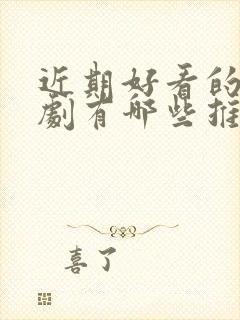 近期好看的
劇有哪些推
喜了